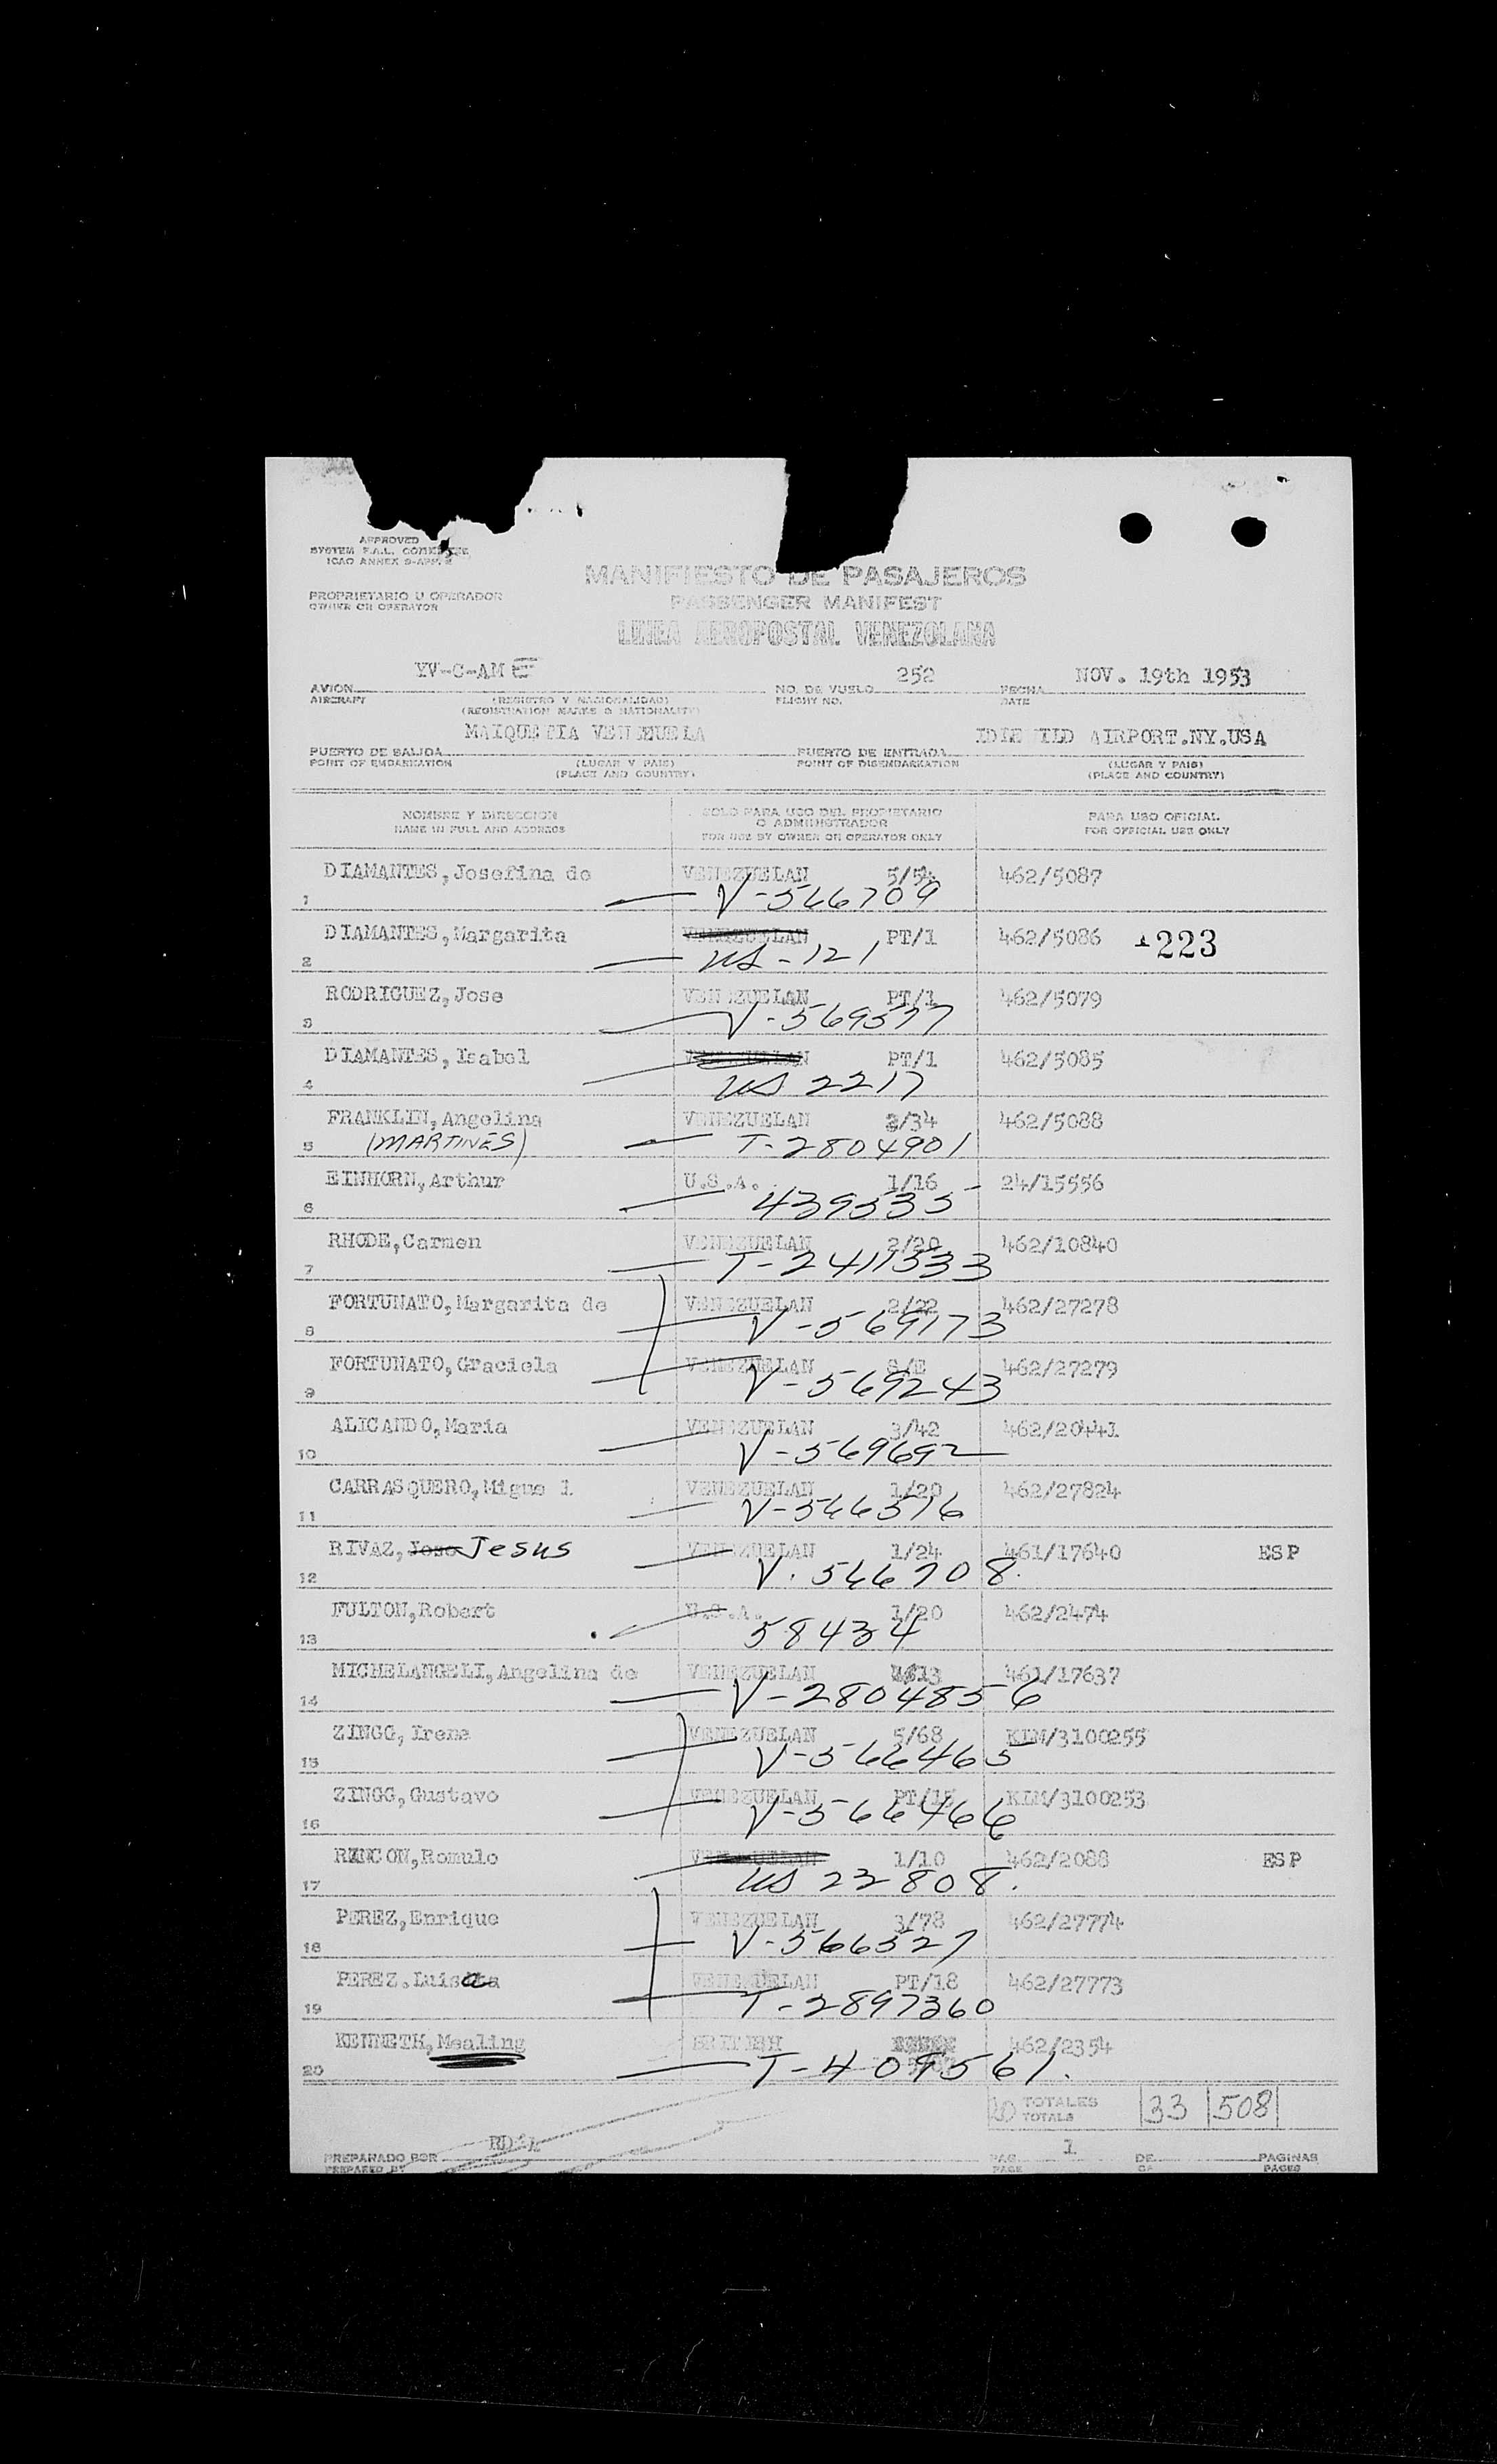 APPROVED
SYSTEM F.A.L. COMMITTEE
ICAO ANNEX 9-APP. 2
MANIFIESTO DE PASAJEROS
PROPRIETARIO U OPERADOR
OWNER OR OPERATOR
PASSENGER MANIFEST
LINEA AEROPOSTAL VENEZOLANA
YV-C-AME 252 NOV. 19th 1953
AVION NO. DE VUELO FECHA
AIRCRAFT (REGISTRO Y NACIONALIDAD) FLIGHT NO. DATE
(REGISTRATION MARKS & NATIONALITY)
MAIQUETIA VENEZUELA IDLEWILD AIRPORT.NY.USA
PUERTO DE SALIDA PUERTO DE ENTRADA
POINT OF EMBARKATION (LUGAR Y PAIS) POINT OF DISEMBARKATION (LUGAR Y PAIS)
(PLACE AND COUNTRY) (PLACE AND COUNTRY)
NOMBRE Y DIRECCION SOLO PARA USO DEL PROPIETARIO PARA USO OFICIAL
NAME IN FULL AND ADDRESS O ADMINISTRADOR FOR OFFICIAL USE ONLY
FOR USE BY OWNER OR OPERATOR ONLY
DIAMANTES,Josefina de VENEZUELAN 5/54 462/5087
1 V-566709
DIAMANTES,Margarita VENEZUELAN PT/1 462/5086 1223
2 US-121
RODRIGUEZ,Jose VENEZUELAN PT/1 462/5079
3 V-569577
DIAMANTES,Isabel VENEZUELAN PT/1 462/5085
4 US 2217
FRANKLIN,Angelina VENEZUELAN 3/34 462/5088
5 (MARTINES) T-2804901
EINHORN,Arthur U.S.A. 1/16 24/15556
6 439535
RHODE,Carmen VENEZUELAN 2/20 462/10840
7 T-2411333
FORTUNATO,Margarita de VENEZUELAN 2/22 462/27278
8 V-569173
FORTUNATO,Graciela VENEZUELAN S/E 462/27279
9 V-569243
ALICANDO,Maria VENEZUELAN 3/42 462/20441
10 V-569692
CARRASQUERO,Migue l VENEZUELAN 1/20 462/27824
11 V-566516
RIVAZ,Jose Jesus VENEZUELAN 1/24 461/17640 ESP
12 V. 566708.
FULTON,Robert U.S.A. 1/20 462/2474
13 58434
MICHELANGELI,Angelina de VENEZUELAN 461/17637
14 V-2804856
ZINGG,Irene VENEZUELAN 5/68 KLM/3100255
15 V-566465
ZINGG,Gustavo VENEZUELAN PT/15 KLM/3100253
16 V-566466
RINCON,Romulo VENEZUELAN 1/10 462/2088 ESP
17 US 22808.
PEREZ,Enrique VENEZUELAN 3/78 462/27774
18 V-566527
PEREZ.Luisa VENEZUELAN PT/18 462/27773
19 T-2897360
KENNETH,Mealing BRITISH 462/2354
20 T-409561.
TOTALES 33 508
TOTALS
PREPARADO POR PAG. 1 DE PAGINAS
PREPARED BY PAGE OF PAGES